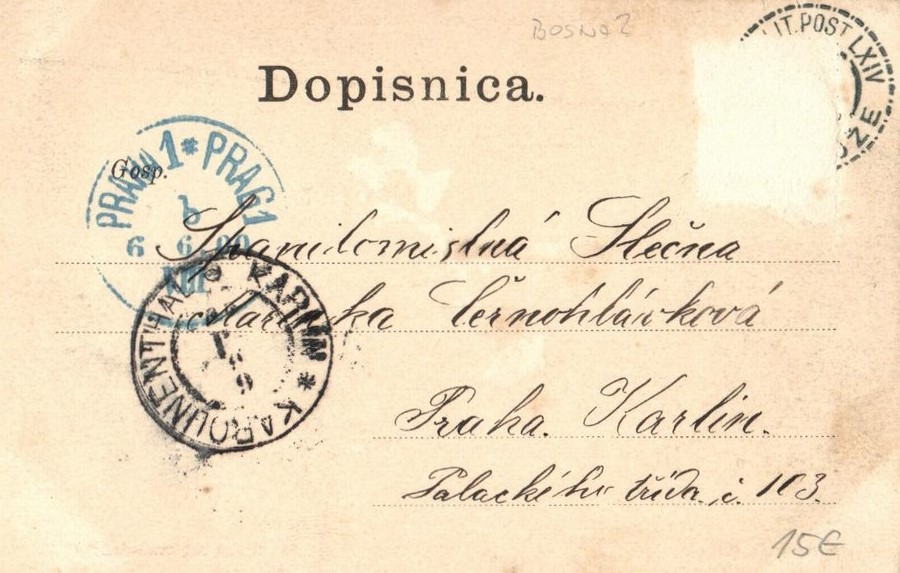 BOSNA?
MILIT. POST LXIV
Dopisnica.
PRAHA 1 * PRAG 1
Gosp.
6 6.00
VIII
Spanilomislná Slečna
Mařenka Černohlávková
KARLÍN * KAROLINENTHAL
Praha. Karlín.
Palackého třída č. 103.
15€